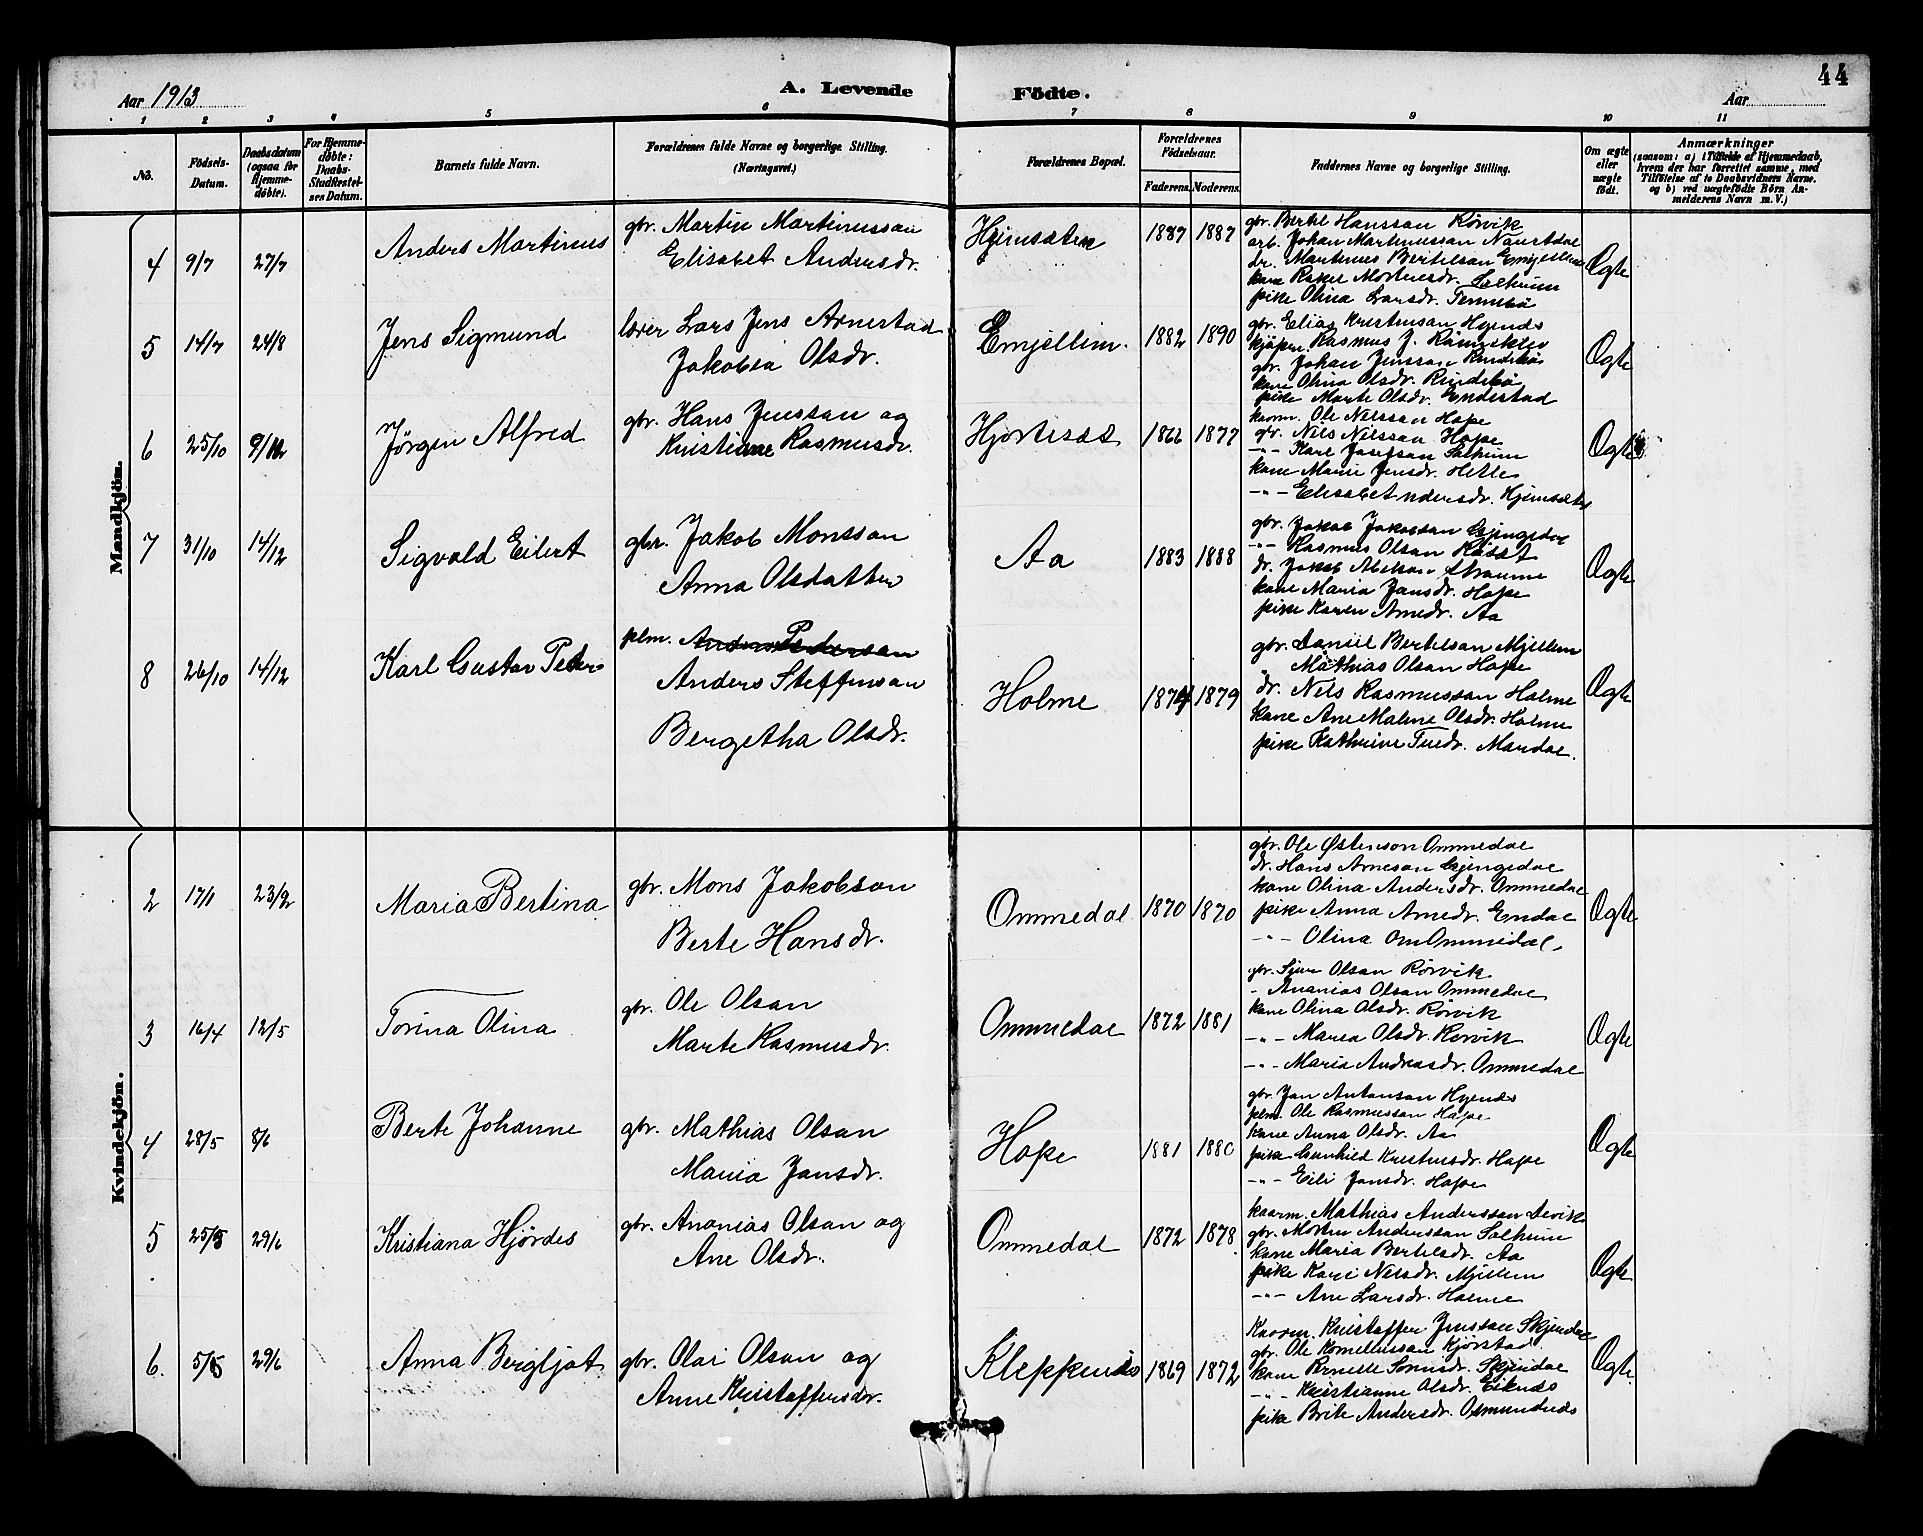 44
Aar 1913 A. Levende Födte. Aar
1 2 3 4 5 6 7 8 9 10 11
No. Födsels-Datum. Daabsdatum (ogsaa for Hjemmedöbte). For Hjemmedöbte: Daabs-Stadfæstelses Datum. Barnets fulde Navn. Forældrenes fulde Navne og borgerlige Stilling. (Næringsvei.) Forældrenes Bopæl. Forældrenes Födselsaar. Faderens. Moderens. Faddernes Navne og borgerlige Stilling. Om ægte eller uægte födt. Anmærkninger (saasom: a) i Tilfælde af Hjemmedaab, hvem der har forrettet samme, med Tilföielse af to Daabsvidners Navne. og b) ved uægtefödte Börn Anmelderens Navn m. V.)
Mandkjön.
4 9/7 27/7 Anders Martinus gbr. Martin Martinussan
Elisabet Andersdr.
Hjemsæten 1887 1887
gbr. Bertel Hanssan Rørvik
arb. Johan Martinussan Naustdal
dr. Martinus Bertelsan Emjellem
kone Rakel Mortensdr. Solheim
pike Olina Larsdr. Tennebø
Ægte
5 14/7 24/8 Jens Sigmund lærer Lars Jens Arnestad
Jakobea Olsdr.
Emjellem. 1882 1890
gbr. Elias Kristensan Hyenes
Rasmus J.
gbr. Johan Jenssan Rindebø
kone Olina Olsdr. Rindebø
pike Marte Olsdr. Endestad
Ægte
6 25/10 9/12 Jørgen Alfred gbr. Hans Jenssan og
Kristiane Rasmusdr.
Hjortesæt 1866 1877
kaarm. Ole Nilssan Hope
gbr. Nils Nilssan Hope
-"- Karl Josefsan Solheim
kone Marie Jensdr. Hetle
-"- Elisabet ndersdr. Hjemsæten
Ægte
7 31/10 14/12 Sigvald Eilert gbr. Jakob Monssan
Anna Olsdatter
Aa 1883 1888
gbr. Jakob Jakobsan Gjengedal
-"- Rasmus Olsan
dr. Jakob Abelsan Straume
kone Maria Jansdr. Hope
pike Karen Arnedr. Aa
Ægte
8 26/10 14/12 Karl Gustav Peder plm. Anders Pedersan
Anders Steffensan
Bergetha Olsdr.
Holme 1874 1879
gbr. Daniel Bertelsan Mjellem
Mathias Olsan Hope
dr. Nils Rasmussan Holme
kone Ane Malene Olsdr. Holme
pike Kathrine Tuedr. Mardal.
Ægte
Kvindekjön.
2 17/1 23/2 Maria Bertina gbr. Mons Jakobsan
Berte Hansdr.
Ommedal 1870 1870
gbr. Ole Østenson Ommedal
dr. Hans Arnesan Gjengedal
kone Olina Andersdr. Ommedal
pike Anna Arnedr. Endal
-"- Olina Ommedal.
Ægte
3 16/4 12/5 Torina Olina gbr. Ole Olsan
Marte Rasmusdr.
Ommedal 1872 1881
gbr. Sjur Olsan Rørvik
- Ananias Olsan Ommedal
kone Olina Olsdr. Rørvik
-"- Maria Olsdr. Rørvik
-"- Maria Andreasdr. Ommedal
Ægte
4 28/5 8/6 Berte Johanne gbr. Mathias Olsan
Maria Jansdr.
Hope 1881 1880
gbr. Jan Antonsan Hyenes
plm. Ole Rasmussan Hope
kone Anna Olsdr. Aa
pike Gunhild Kristensdr. Hope
-"- Eili Jansdr. Hope
Ægte
5 25/5 29/6 Kristiana Hjørdes gbr. Ananias Olsan og
Ane Olsdr.
Ommedal 1872 1878
kaarm. Mathias Anderssan
gbr. Morten Anderssan Solheim
kone Maria Bertelsdr. Aa
pike Kari Nilsdr. Mjellem
-"- Ane Larsdr. Holme
Ægte
6. 5/5 29/6 Anna Bergljot gbr. Olai Olsan og
Anne Kristaffersdr.
Kleppenes 1869 1872
Kaarm. Kristaffer Jenssan Skjerdal
gbr. Ole Kornelîussan Kjørstad
kone Skjerdal
-"- Kristianne Olsdr. Eikenes
pike Brite Andersdr. Osmundnes
Ægte